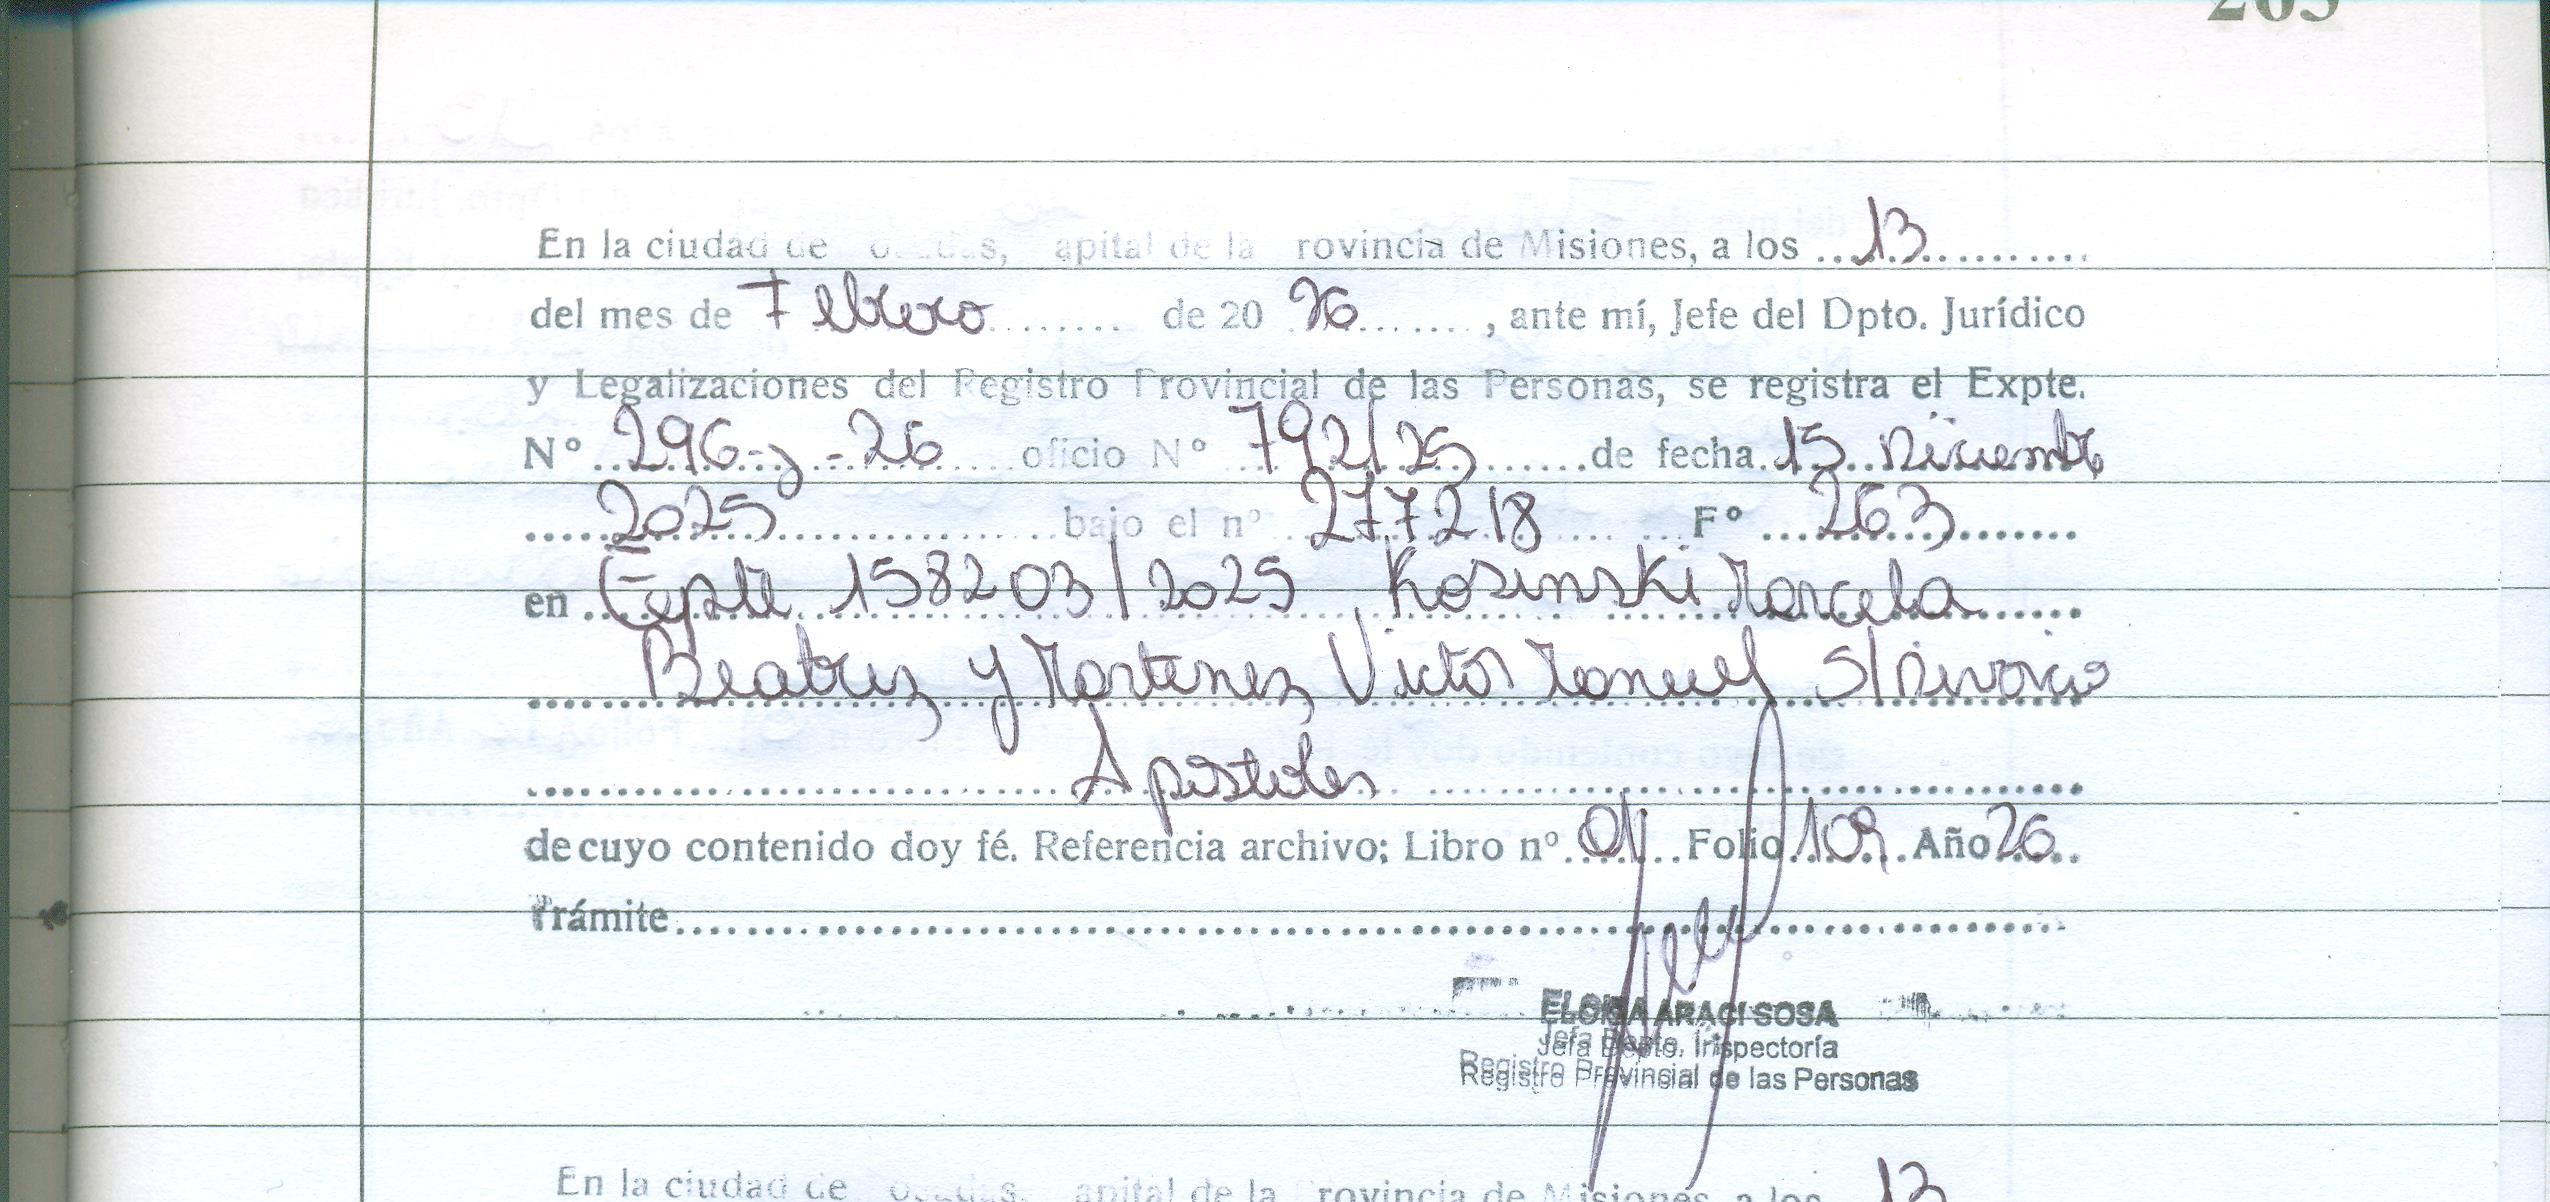 263
En la ciudad de osadas, apital de la rovincia de Misiones, a los ...13...
del mes de Febrero ... de 20 26 ..., ante mí, Jefe del Dpto. Jurídico
y Legalizaciones del Registro Provincial de las Personas, se registra el Expte.
Nº ..296-J-26.... oficio Nº ..792/25.......de fecha.15 Diciembre
....2025.................bajo el nº 277218 ... Fº ...263.......
en ..Expte 158203/2025 Kosinski Marcela......
Beatriz y Martinez, Victor Manuel S/Divorcio
Apostoles
de cuyo contenido doy fé. Referencia archivo: Libro nº.01...Folio 109..Año 26..
Trámite........................................
ELOISA ARACI SOSA
Jefa Depto. Inspectoría
Registro Provincial de las Personas
En la ciudad de osadas, apital de la rovincia de Misiones, a los 13